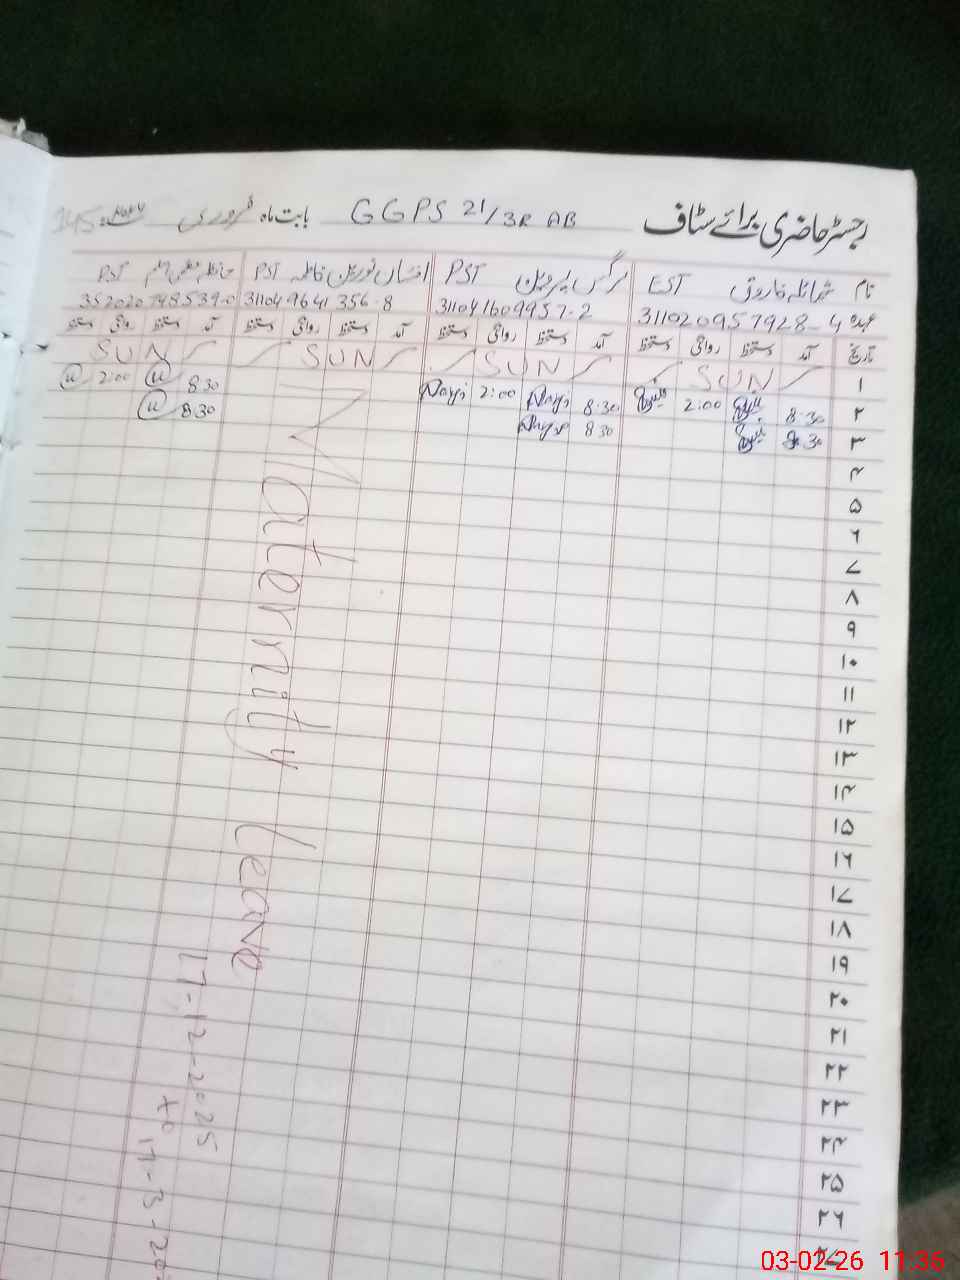 رجسٹر حاضری برائے سٹاف GGPS 21/3R AB بابت ماہ فروری
نام شمائلہ فاروق EST نرگس پروین PST افشاں نورین فاطمہ PST PST
عہدہ 311020957928-4 311041609957-2 311049641356-8 352020748539-0
تاریخ آمد دستخط روانگی دستخط آمد دستخط روانگی دستخط آمد دستخط روانگی دستخط آمد دستخط روانگی دستخط
۱ SUN SUN SUN SUN
۲ 8:30 2:00 8:30 Nargi 2:00 Nargi 8:30 2:00
۳ 8:30 8:30 8:30
۴
۵
۶
۷
۸
۹
۱۰
۱۱
۱۲
۱۳
۱۴
۱۵
۱۶
۱۷
۱۸
۱۹
۲۰
۲۱
۲۲
۲۳
۲۴
۲۵
۲۶
۲۷
Maternity leave
17-12-2025
to
03-02-26 11:36